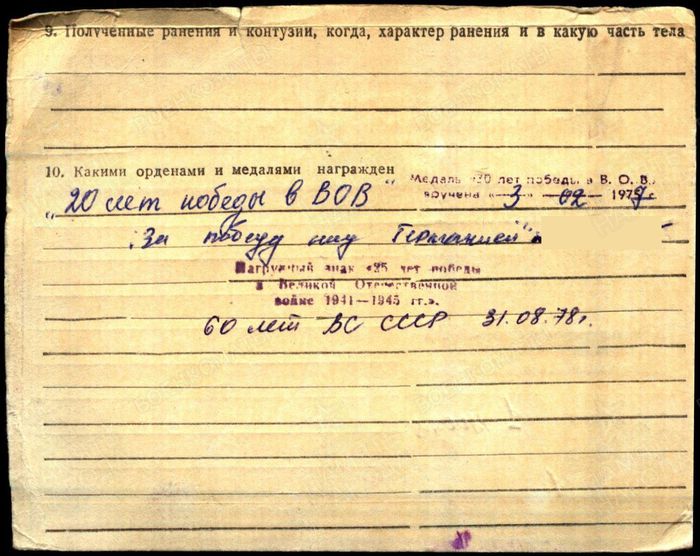 9. Полученные ранения и контузии, когда, характер ранения и в какую часть тела
10. Какими орденами и медалями награжден
Медаль «30 лет победы в В. О. В.»
вручена «3» 02 1977г.
„20 лет победы в ВОВ"
„За победу над Германией"
Нагрудный знак «25 лет победы
в Великой Отечественной
войне 1941—1945 гг.».
60 лет ВС СССР 31.08.78г.